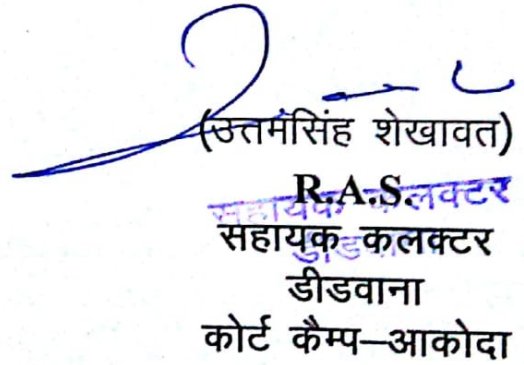 (उत्तमंसिंह शेखावत)
R.A.S.
सहायक कलक्टर
सहायक कलक्टर
डीडवाना
कोर्ट कैम्प–आकोदा